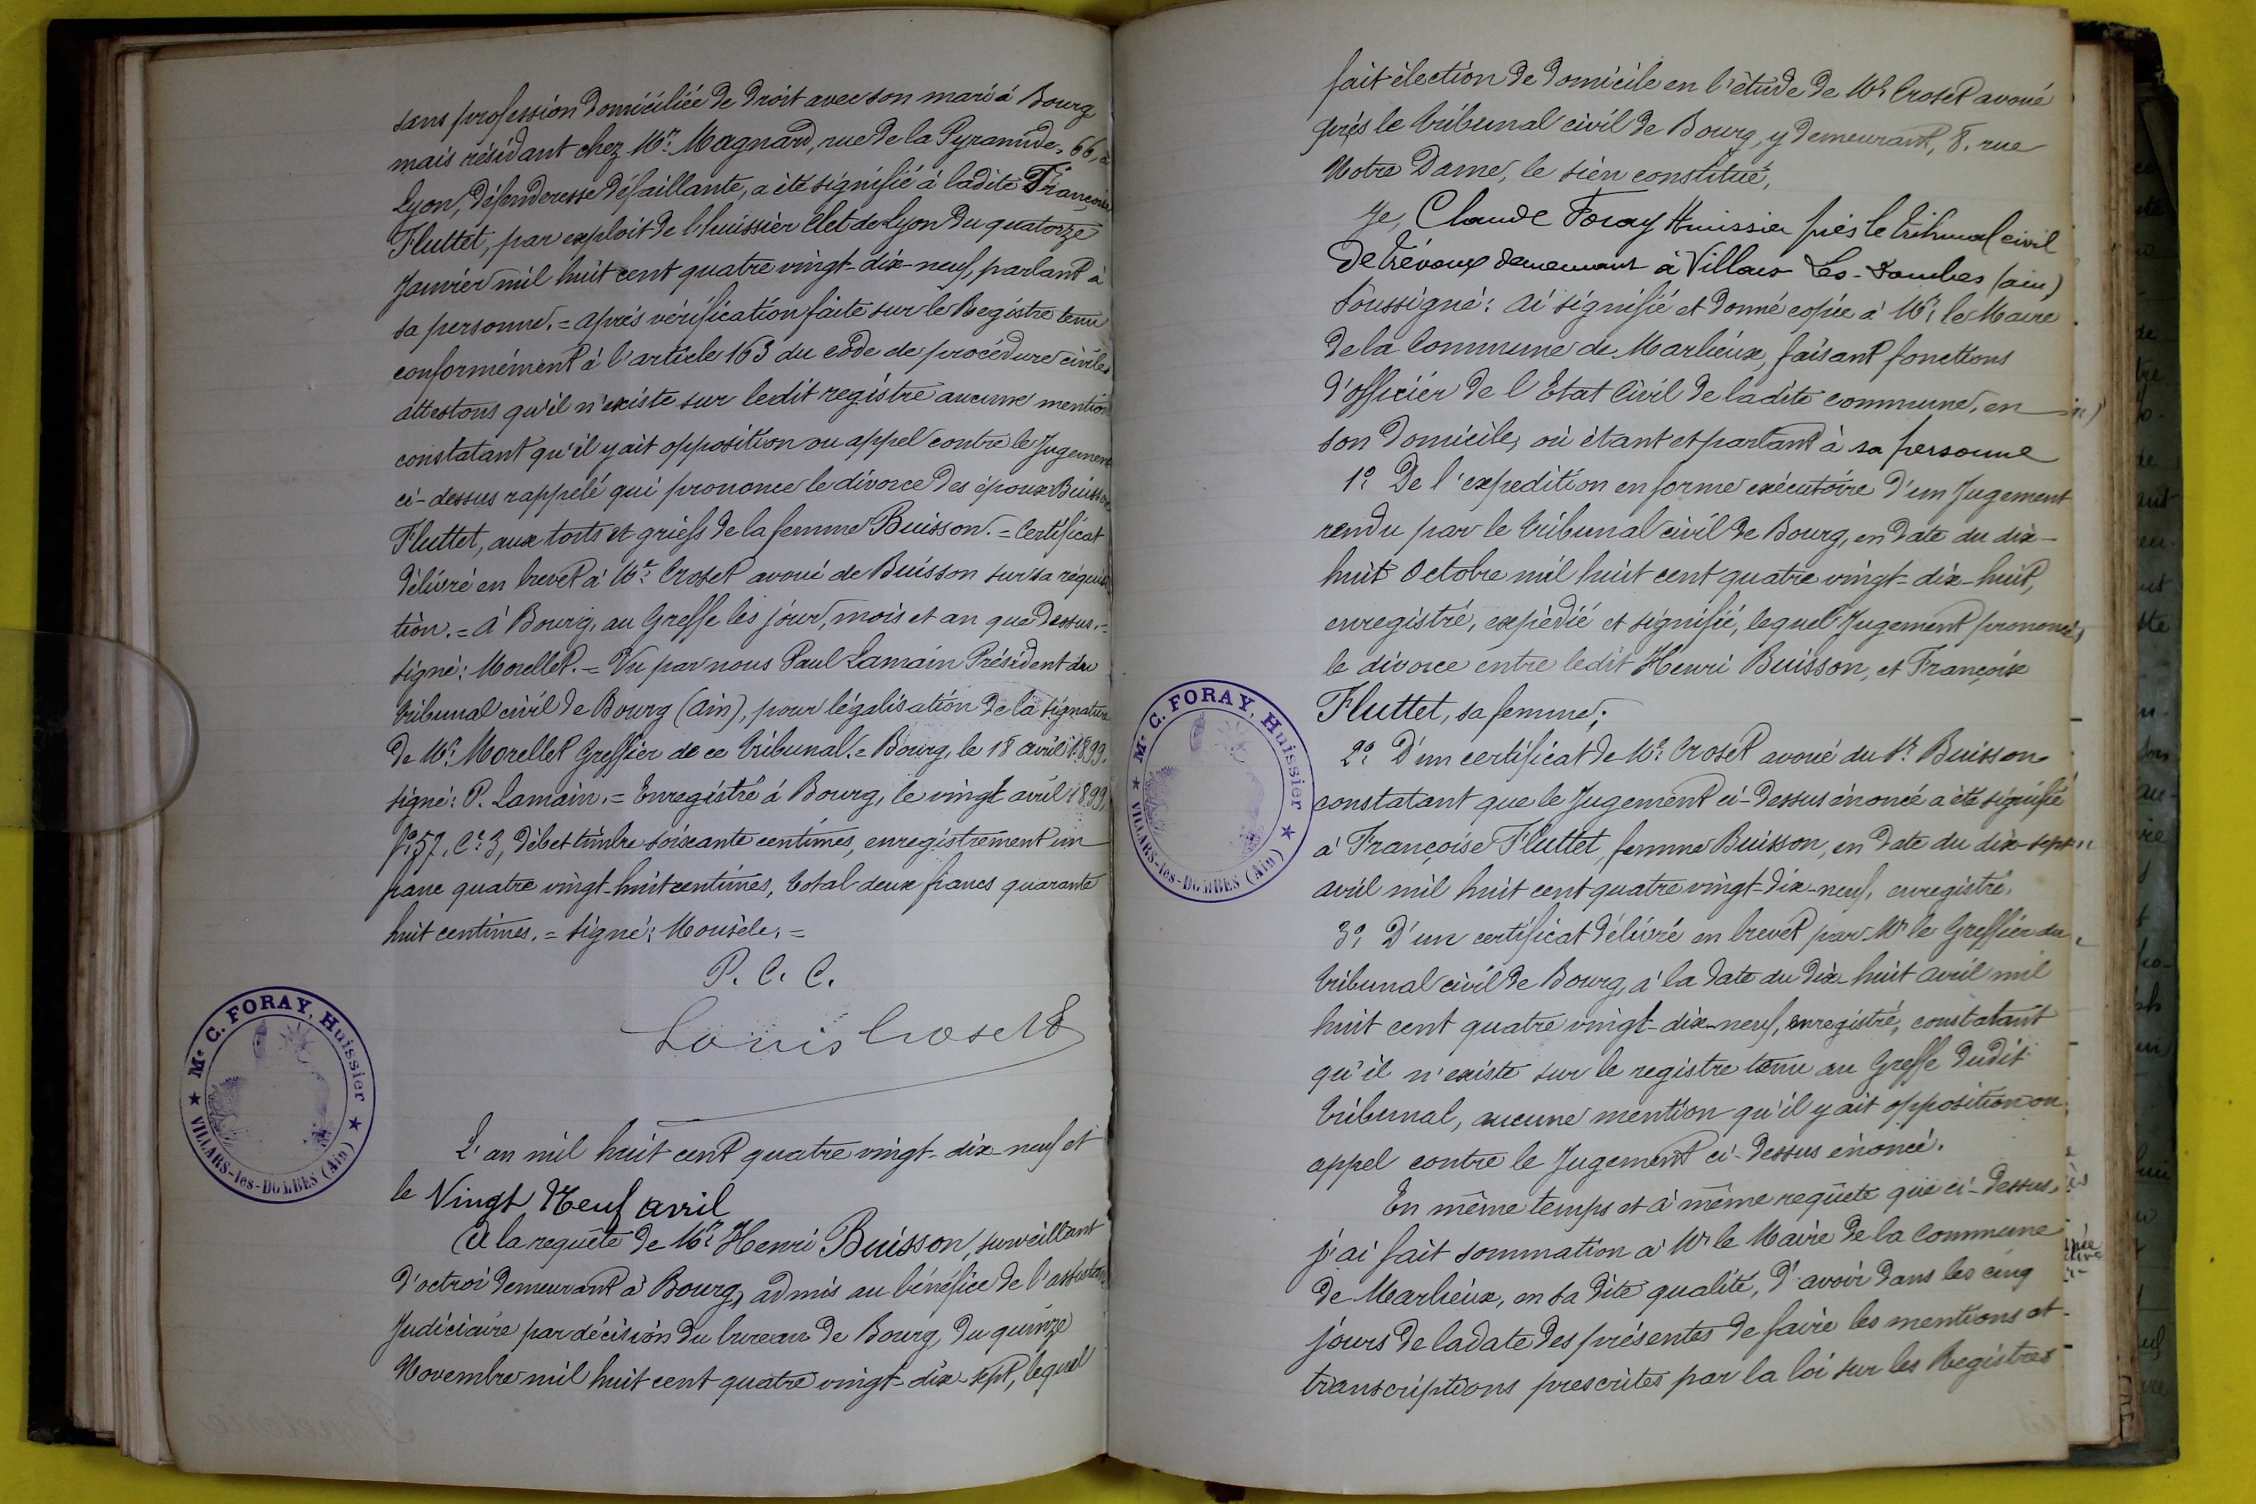 sans profession domiciliée de droit avec son mari à Bourg
mais résidant chez Mr. Magnard, rue de la Pyramide, 66, à
Lyon, défenderesse défaillante, a été signifié à ladite Françoise
Fluttet, par exploit de l'huissier Clet de Lyon du quatorze
Janvier mil huit cent quatre vingt-dix-neuf, parlant à
sa personne. = après vérification faite sur le Registre tenu
conformément à l'article 163 du code de procédure civile
attestons qu'il n'existe sur ledit registre aucune mention
constatant qu'il y ait opposition ou appel contre le Jugement
ci-dessus rappelé qui prononce le divorce des époux Buisson
Fluttet, aux torts et griefs de la femme Buisson. = Certificat
délivré en brevet à Me. Croset avoué de Buisson sur sa réquisi
tion. = à Bourg, au Greffe les jour, mois et an que dessus. =
signé: Morellet. = Vu par nous Paul Lamain Président du
tribunal civil de Bourg (Ain), pour légalisation de la signature
de Me. Morellet Greffier de ce tribunal. = Bourg, le 18 avril 1899.
signé: P. Lamain. = Enregistré à Bourg, le vingt avril 1899,
fo. 57, Ce. 3, Débet timbre soixante centimes, enregistrement un
franc quatre vingt-huit centimes, total deux francs quarante
huit centimes. = signé: =
P. C. C.
Louis Croset
Me. C. FORAY, Huissier
★ VILLARS-les-DOMBES (Ain) ★
L'an mil huit cent quatre vingt-dix-neuf et
le Vingt Neuf avril
A la requête de Mr. Henri Buisson, surveillant
d'octroi demeurant à Bourg, admis au bénéfice de l'assistance
Judiciaire par décision du bureau de Bourg, du quinze
Novembre mil huit cent quatre vingt-dix-sept, lequel
fait élection de domicile en l'étude de Me. Croset avoué
près le tribunal civil de Bourg, y demeurant, 8, rue
Notre Dame, le sien constitué,
Je, Claude Foray Huissier près le tribunal civil
de Trévoux demeurant à Villars-Les-Dombes (ain)
soussigné: ai signifié et donné copie à Mr. le Maire
de la Commune de Marlieux, faisant fonctions
d'officier de l'Etat Civil de ladite commune, en
son domicile, où étant et parlant à sa personne
1o. De l'expedition en forme exécutoire d'un Jugement
rendu par le tribunal civil de Bourg, en date du dix-
huit Octobre mil huit cent quatre vingt-dix-huit,
enregistré, expédié et signifié, lequel Jugement prononce
le divorce entre ledit Henri Buisson, et Françoise
Fluttet, sa femme;
2o. D'un certificat de Me. Croset avoué du Sr. Buisson
constatant que le Jugement ci-dessus énoncé a été signifié
à Françoise Fluttet, femme Buisson, en date du dix-sept
avril mil huit cent quatre vingt-dix-neuf, enregistré.
3o. D'un certificat délivré en brevet par Mr le Greffier du
tribunal civil de Bourg, à la date du dix huit avril mil
huit cent quatre vingt-dix-neuf, enregistré, constatant
qu'il n'existe sur le registre tenu au Greffe dudit
tribunal, aucune mention qu'il y ait opposition ou
appel contre le Jugement ci-dessus énoncé.
En même temps et à même requête que ci-dessus,
j'ai fait sommation à Mr le Maire de la Commune
de Marlieux, en sa dite qualité, d'avoir dans les cinq
jours de la date des présentes de faire les mentions et
transcriptions prescrites par la loi sur les Registres
Me. C. FORAY, Huissier
★ VILLARS-les-DOMBES (Ain) ★